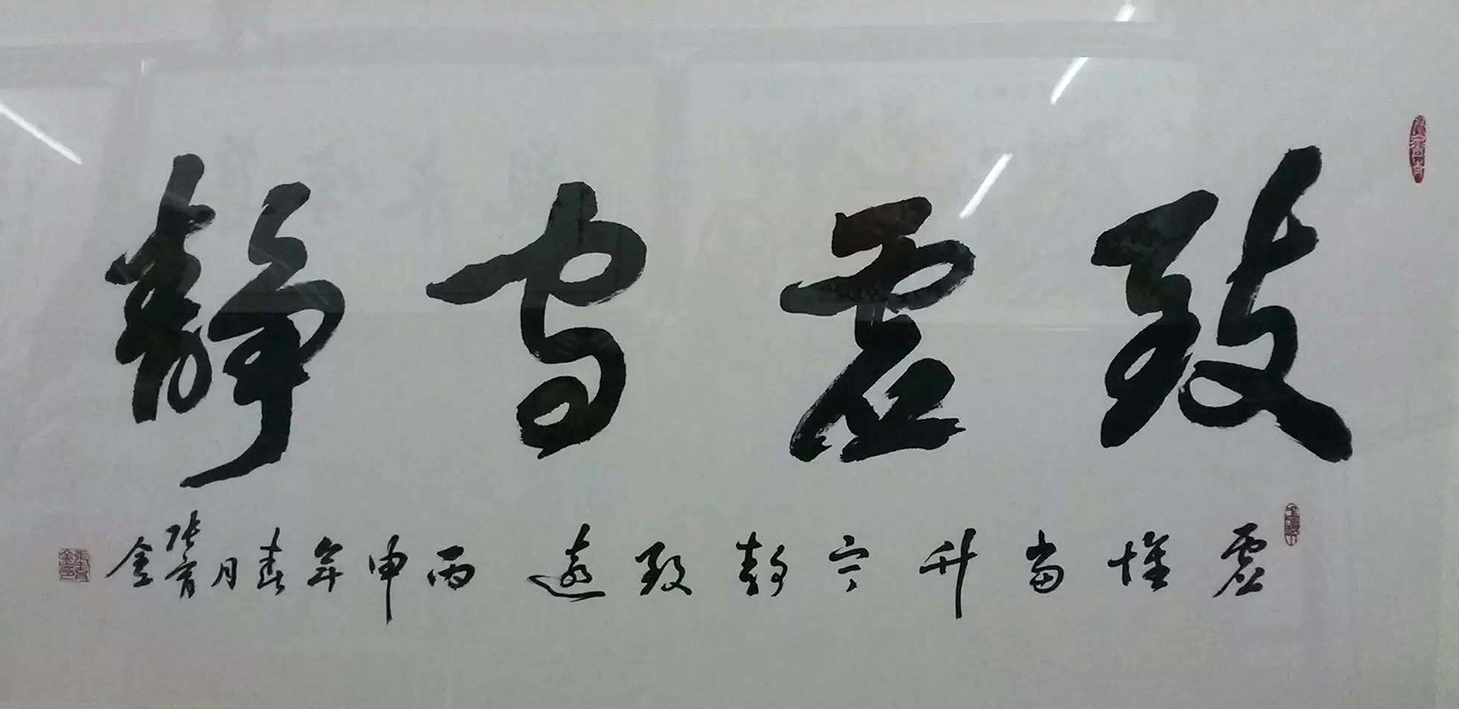 致虚守静
虚当升宁静致远 丙申年春月 张育金